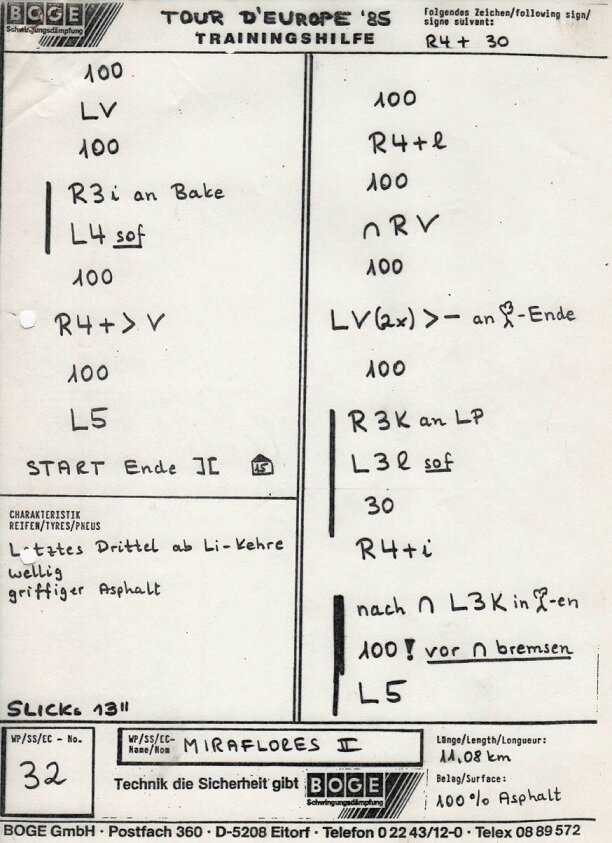 BOGE
Schwingungsdämpfung
TOUR D'EUROPE '85
TRAININGSHILFE
Folgendes Zeichen/following sign/
signe suivant:
R4+ 30
100
LV
100
R3i an Bake
L4 sof
100
R4+> V
100
L5
START Ende ][ 15
CHARAKTERISTIK
REIFEN/TYRES/PNEUS
Letztes Drittel ab Li-Kehre
wellig
griffiger Asphalt
SLICKs 13"
100
R4+l
100
∩ R V
100
LV(2x) >– an -Ende
100
R3K an LP
L3l sof
30
R4+i
nach ∩ L3K in -en
100! vor ∩ bremsen
L5
WP/SS/EC - No.
32
WP/SS/EC-
Name/Nom
MIRAFLORES II
Technik die Sicherheit gibt
BOGE
Schwingungsdämpfung
Länge/Length/Longueur:
11,08 km
Belag/Surface:
100% Asphalt
BOGE GmbH · Postfach 360 · D-5208 Eitorf · Telefon 0 22 43/12-0 · Telex 08 89 572